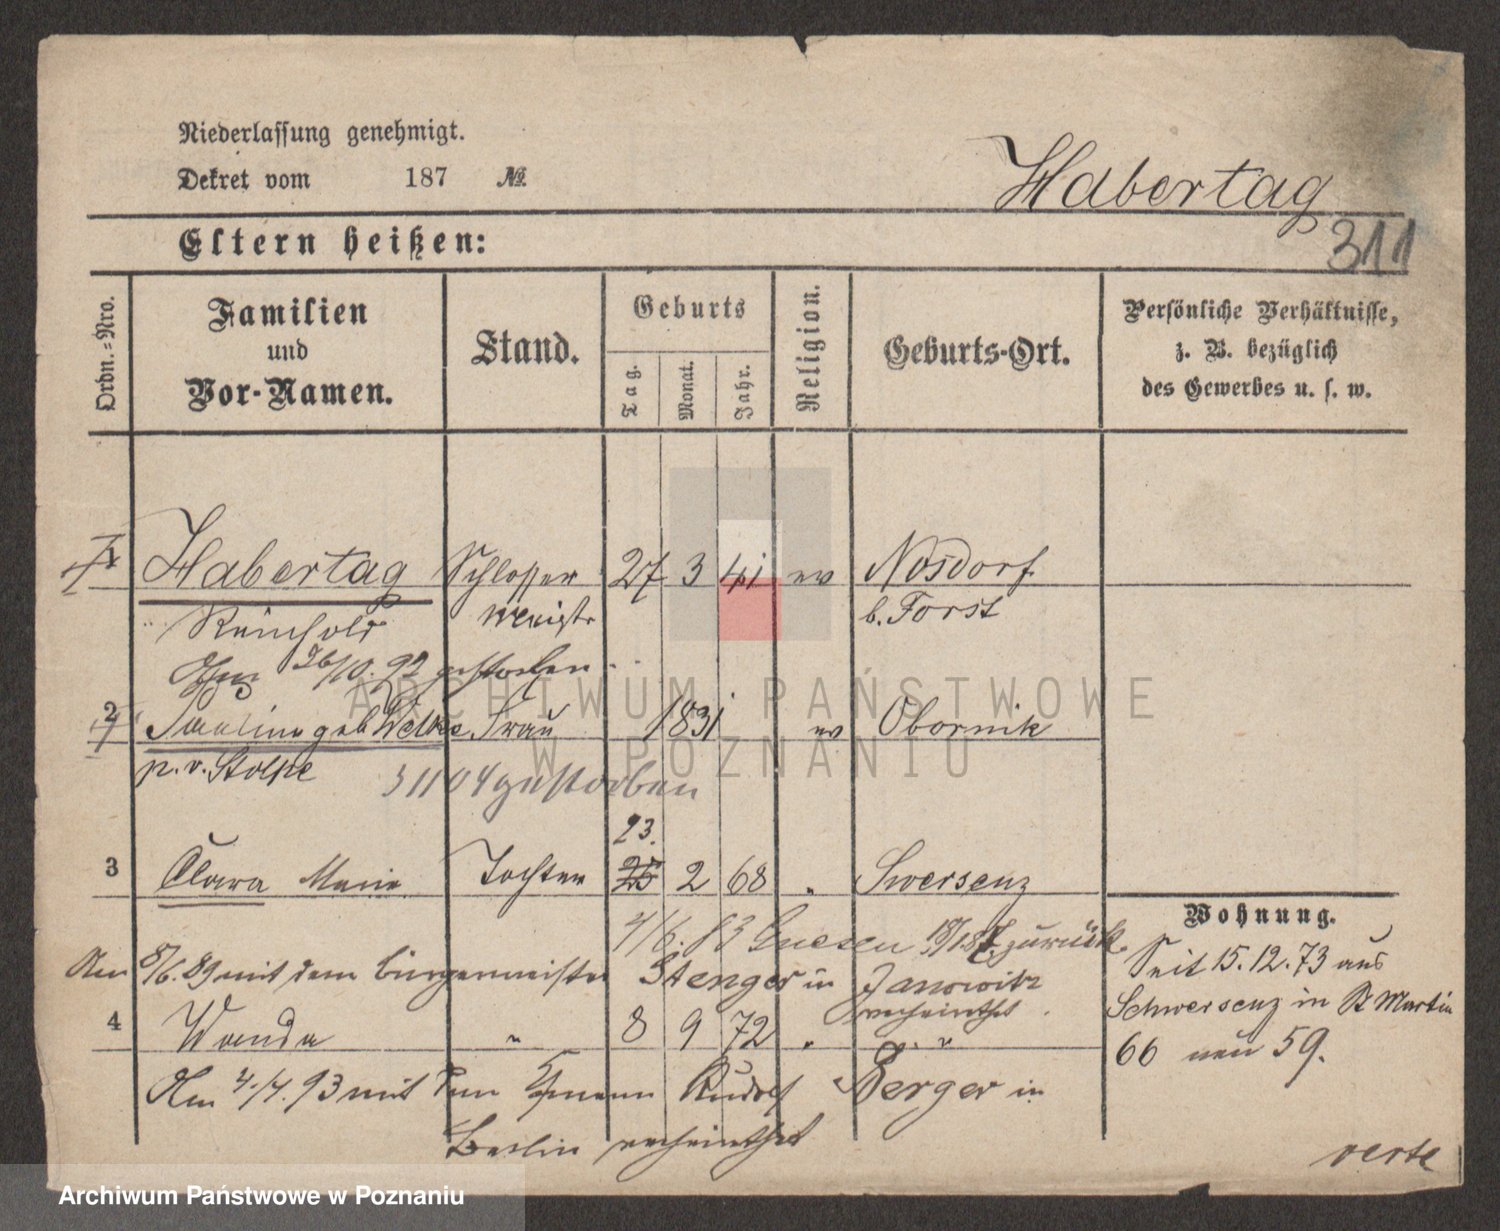 Niederlassung genehmigt.
Dekret vom 187 №.
Habertag
311
Eltern heißen:
Ordn.-Nro.
Familien und Vor-Namen.
Stand.
Geburts
Tag. Monat. Jahr.
Religion.
Geburts-Ort.
Persönliche Verhältnisse,
z. B. bezüglich
des Gewerbes u. s. w.
1 Habertag Schlosser 27 3 41 ev Nosdorf
Reinhold b. Forst
10. 92 gestorben
2 Pauline geb Frau 1831 ev Obornik
p. v. Stolpe 3 11 04 gestorben
23.
3 Clara Marie Tochter 25 2 68 " Swersenz
4/6. 83 Gnesen zurück.
Am 8/6. 89 mit dem Bürgermeister Stenger in Janowitz
verheirathet.
4 Wanda " 8 9 72 " "
Am 4./4. 93 mit dem Rudolf Berger in
Berlin verheirathet
Wohnung.
Seit 15.12.73 aus
Schwersenz in St Martin
66 neu 59.
verte
ARCHIWUM PAŃSTWOWE
W POZNANIU
Archiwum Państwowe w Poznaniu